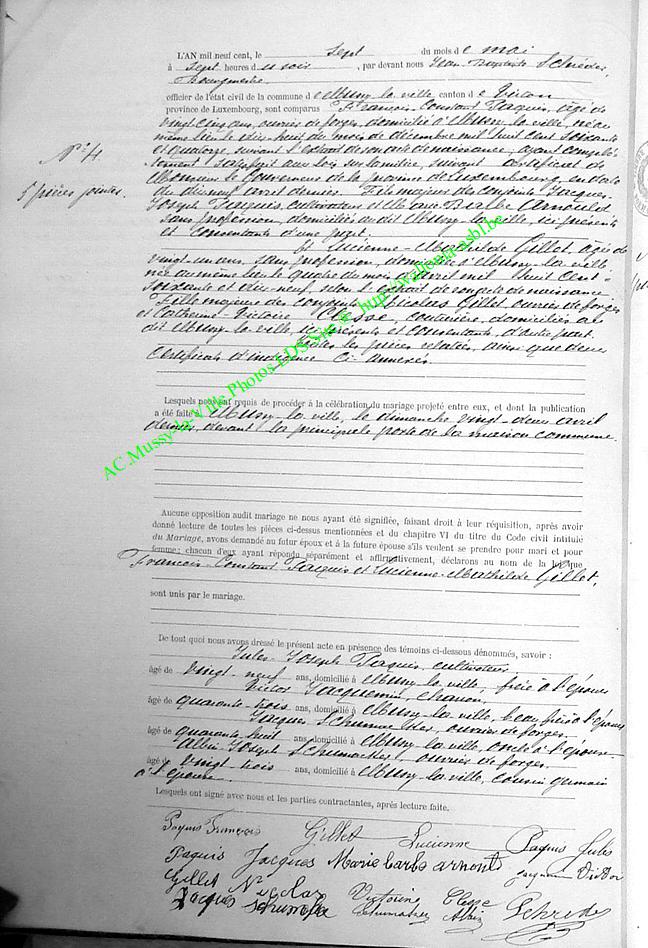 L'AN mil neuf cent, le sept du mois de mai
à sept heures du soir, par devant nous Jean-Baptiste Schréder,
Bourgmestre
officier de l'état civil de la commune de Mussy-la-ville, canton de Virton
province de Luxembourg, sont comparus François-Constant Paquis, âgé de
vingt-cinq ans, ouvrier de forges, domicilié à Mussy-la-ville, né au
même lieu le dix-huit du mois de décembre mil huit cent soixante
et quatorze, suivant l'extrait de son acte de naissance, ayant complè-
tement satisfait aux lois sur la milice, suivant certificat de
Monsieur le Gouverneur de la province de Luxembourg, en date
du dix-neuf avril dernier. Fils majeur des conjoints Jacques-
Joseph Paquis, cultivateur et Marie Barbe Arnould
sans profession, domiciliés au dit Mussy-la-ville, ici présents
et consentants d'une part.
N° 4.
5 pièces jointes.
Et Lucienne-Mathilde Gillet, âgée de
vingt-un ans, sans profession, domiciliée à Mussy-la-ville
née au même lieu le quatre du mois d'avril mil huit cent
soixante et dix-neuf, selon l'extrait de son acte de naissance.
Fille majeure des conjoints Nicolas Gillet, ouvrier de forges
et Catherine-Victoire Classe, couturière, domiciliés au
dit Mussy-la-ville, ici présents et consentants, d'autre part.
toutes les pièces relatées, ainsi que deux
certificats d'indigence ci-annexés
Lesquels nous ont requis de procéder à la célébration du mariage projeté entre eux, et dont la publication
a été faite à Mussy-la-ville, le dimanche vingt-deux avril
dernier, devant la principale porte de la maison commune
Aucune opposition audit mariage ne nous ayant été signifiée, faisant droit à leur réquisition, après avoir
donné lecture de toutes les pièces ci-dessus mentionnées et du chapitre VI du titre du Code civil intitulé
du Mariage, avons demandé au futur époux et à la future épouse s'ils veulent se prendre pour mari et pour
femme; chacun d'eux ayant répondu séparément et affirmativement, déclarons au nom de la loi que
François-Constant Paquis et Lucienne-Mathilde Gillet,
sont unis par le mariage.
De tout quoi nous avons dressé le présent acte en présence des témoins ci-dessous dénommés, savoir :
Jules-Joseph Paquis, cultivateur,
âgé de vingt-neuf ans, domicilié à Mussy-la-ville, frère à l'époux
Victor Jacquemin, charron,
âgé de quarante-trois ans, domicilié à Mussy-la-ville, beau-frère à l'époux
Jacques Schumacker, ouvrier de forges,
âgé de quarante-huit ans, domicilié à Mussy-la-ville, oncle à l'épouse
Albin Joseph Schumacker, ouvrier de forges,
âgé de vingt-trois ans, domicilié à Mussy-la-ville, cousin germain
à l'épouse.
Lesquels ont signé avec nous et les parties contractantes, après lecture faite.
Paquis François Gillet Lucienne Paquis Jules
Paquis Jacques Marie Barbe Arnould Jacquemin Victor
Gillet Nicolas Victoire Classe
Jacques Schumacker Schumacker Albin Schréder
AC.Mussy-la-Ville Photos EDS Site @ http://wallonia-asbl.be